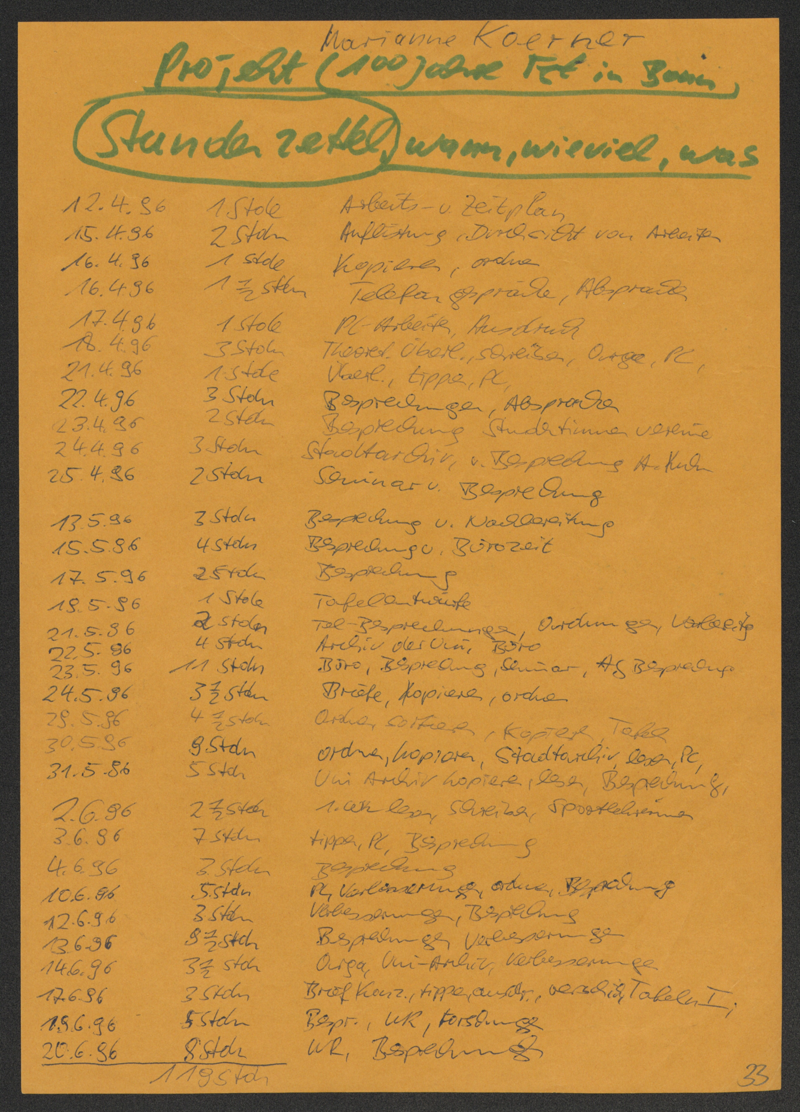 Marianne Koerner
Projekt (100 Jahre in Bonn,
Stundenzettel, wann, wieviel, was
12.4.96 1 Stde Arbeits- u Zeitplan
15.4.96 2 Stdn Auflistung, Durchsicht von Arbeiten
16.4.96 1 Stde Kopieren, ordnen
16.4.96 1 1/2 Stdn Telefongespräche, Absprachen
17.4.96 1 Stde PC-Arbeiten, Ausdruck
18.4.96 3 Stdn Theoret. Überl., schreiben, Orga, PC,
21.4.96 1 Stde Überl., tippen, PC,
22.4.96 3 Stdn Besprechungen, Absprachen
23.4.96 2 Stdn Besprechung Studentinnenvereine
24.4.96 3 Stdn Stadtarchiv, u. Besprechung A. Kuhn
25.4.96 2 Stdn Seminar u. Besprechung
13.5.96 3 Stdn Besprechung u. Nachbereitung
15.5.96 4 Stdn Besprechung u. Bürozeit
17.5.96 2 Stdn Besprechung
19.5.96 1 Stde Tafelentwürfe
21.5.96 2 Stden Tel-Besprechungen, Ordnungen,
22.5.96 4 Stdn Archiv der Uni, Büro
23.5.96 11 Stdn Büro, Besprechung, Seminar, AG Besprechung
24.5.96 3 1/2 Stdn Briefe, Kopieren, ordnen
29.5.96 4 1/2 Stdn Ordner sortieren, Kopieren, Tafeln
30.5.96 9 Stdn ordnen, kopieren, Stadtarchiv, lesen, PC,
31.5.96 5 Stdn Uni Archiv kopieren, lesen, Besprechung,
2.6.96 2 1/2 Stdn lesen, schreiben, Sportlehrerinnen
3.6.96 7 Stdn tippen, PC, Besprechung
4.6.96 3 Stdn Besprechung
10.6.96 5 Stdn PC, Verbesserungen, ordnen, Besprechung
12.6.96 3 Stdn Verbesserungen, Besprechung
13.6.96 1/2 Stdn Besprechungen, Verbesserungen
14.6.96 3 1/2 Stdn Orga, Uni-Archiv, Verbesserungen
17.6.96 3 Stdn Brief Kanz., tippen, ausdr., Tabellen I,
19.6.96 5 Stdn Bespr., UR, Forschungen
20.6.96 8 Stdn UR, Besprechungen
119 Stdn
33